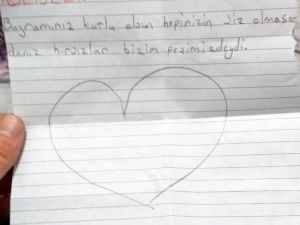 Bayramınız kutlu olsun hepinizin siz olmasay
danız hırsızlar bizim peşimizdeydi.